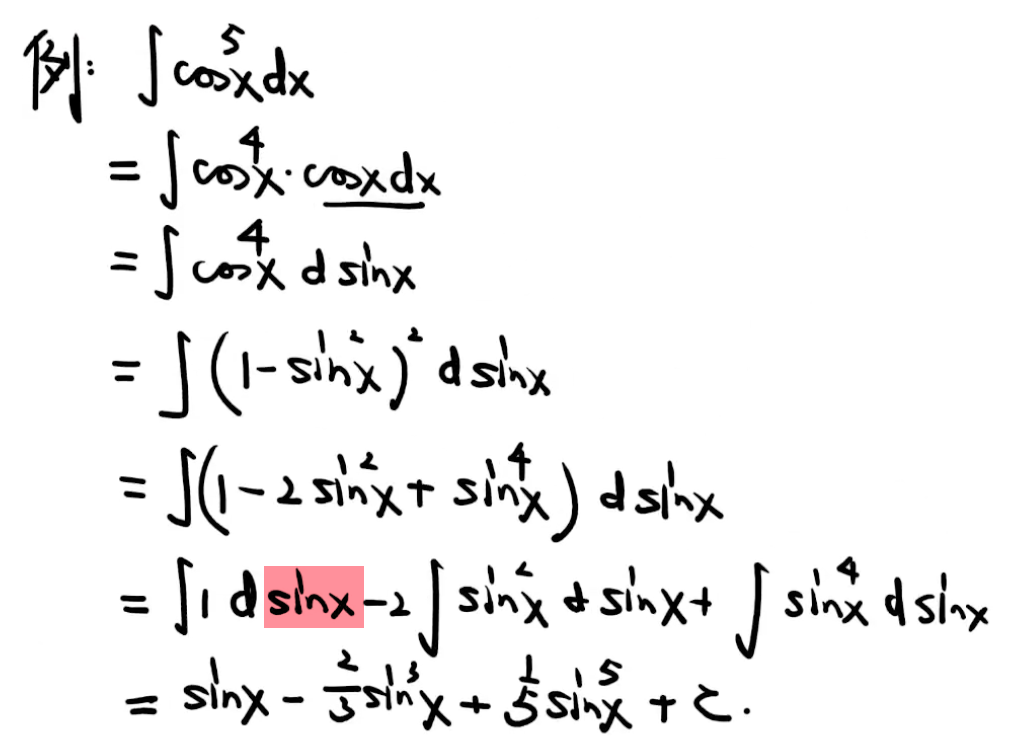 例: ∫cos⁵x dx
= ∫cos⁴x · cosx dx
= ∫cos⁴x d sinx
= ∫(1-sin²x)² d sinx
= ∫(1-2sin²x+sin⁴x) d sinx
= ∫1 d sinx-2∫sin²x d sinx+∫sin⁴x d sinx
= sinx-2/3 sin³x+1/5 sin⁵x+C.